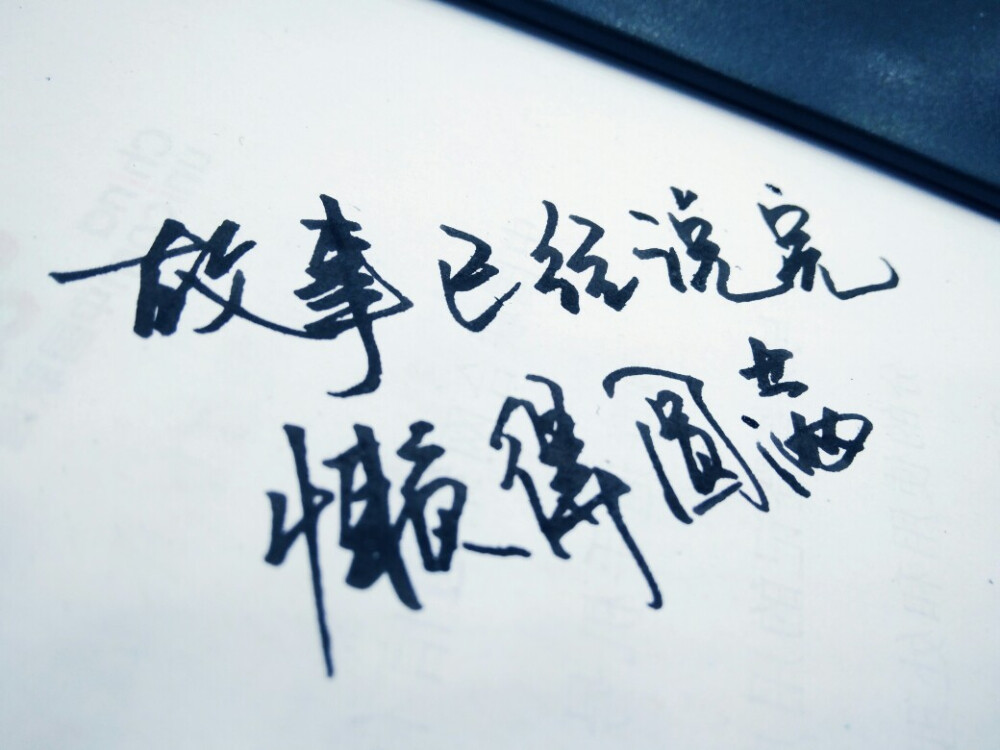 故事已经说完
懒得圆满